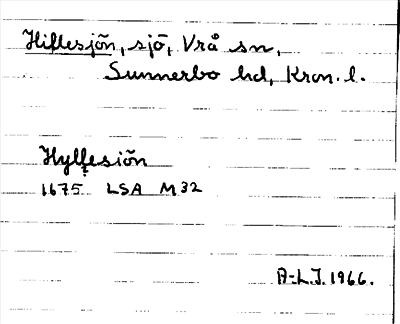 Hiflesjön, sjö, Vrå sn,
Sunnerbo hd, Kron. l.
Hylfesiön
1675 LSA M32
A-L.J. 1966.